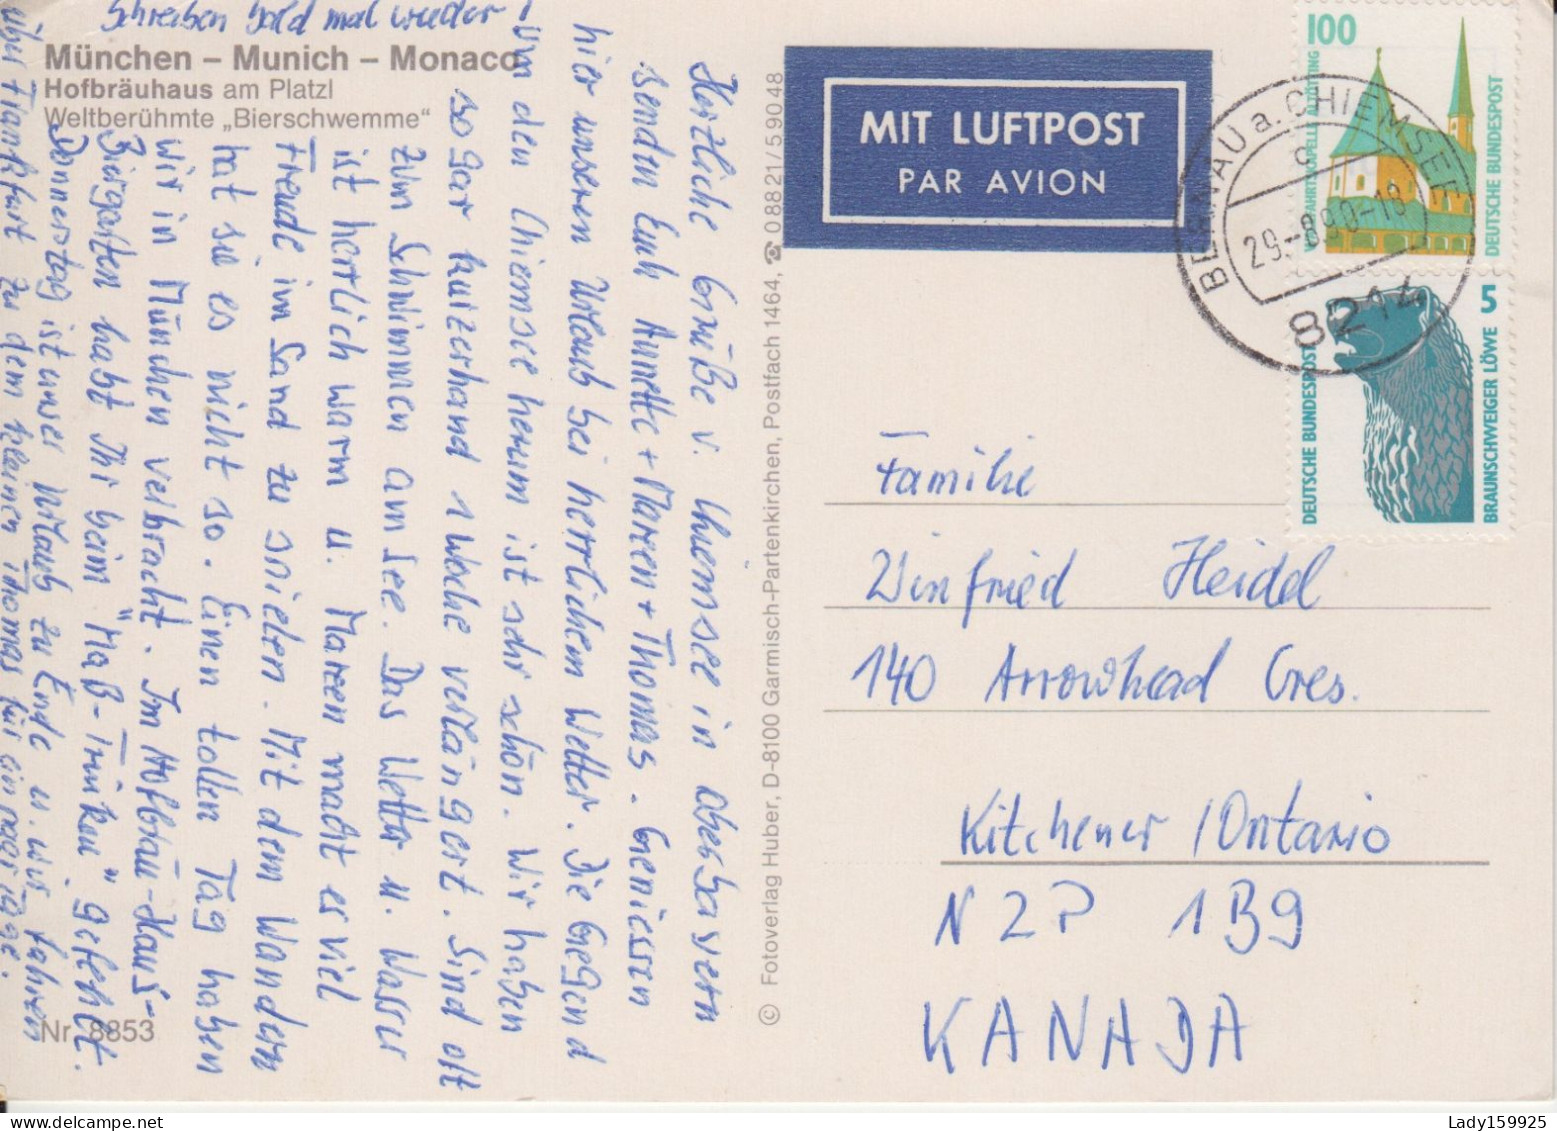 München – Munich – Monaco
Hofbräuhaus am Platzl
Weltberühmte „Bierschwemme“
Nr. 8853
Herzliche Grüße v. Chiemsee in Oberbayern
senden Euch Annette + Mareen + Thomas. Geniessen
hier unseren Urlaub bei herrlichem Wetter. Die Gegend
um den Chiemsee herum ist sehr schön. Wir haben
sogar kurzerhand 1 Woche verlängert. Sind oft
zum Schwimmen am See. Das Wetter u. Wasser
ist herrlich warm u. Mareen macht es viel
Freude im Sand zu spielen. Mit dem Wandern
hat sie es nicht so. Einen tollen Tag haben
wir in München verbracht. Im Hofbräu-Haus-
Biergarten habt Ihr beim "Maß-Trinken" gefehlt.
Donnerstag ist unser Urlaub zu Ende u. wir fahren
über Frankfurt zu dem kleinen Thomas für ein paar Tage.
Schreiben bald mal wieder!
© Fotoverlag Huber, D-8100 Garmisch-Partenkirchen, Postfach 1464, ☎ 08821/59048
MIT LUFTPOST
PAR AVION
100
WALLFAHRTSKAPELLE ALTÖTTING
DEUTSCHE BUNDESPOST
5
DEUTSCHE BUNDESPOST
BRAUNSCHWEIGER LÖWE
BERNAU a. CHIEMSEE
c
29.-8.90-18
8214
Familie
Winfried Heidel
140 Arrowhead Cres.
Kitchener / Ontario
N2P 1B9
KANADA
Lady159925